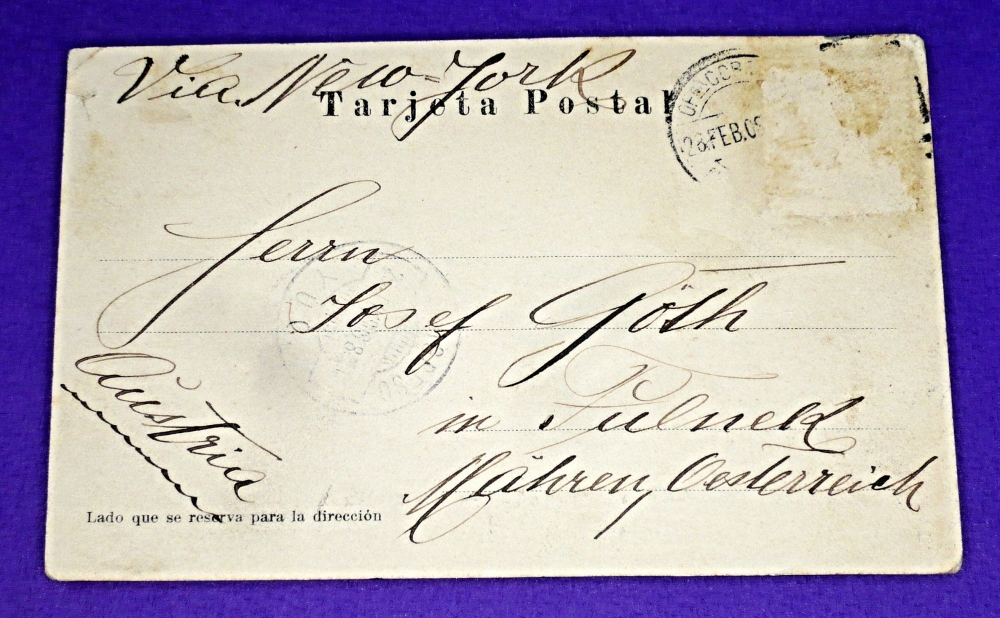 Via New-York
Tarjeta Postal
28.FEB.05
Herrn
Josef Göth
in Fulnek
Mähren, Oesterreich
Austria
Lado que se reserva para la dirección